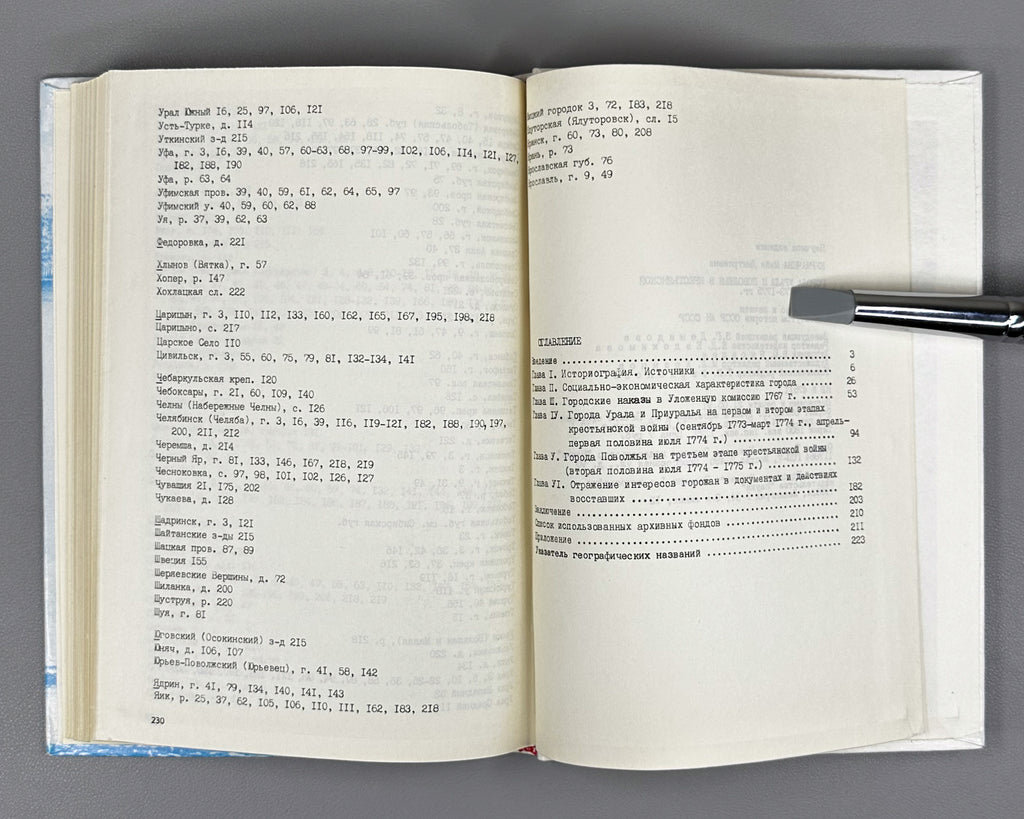 Урал Южный I6, 25, 97, I06, I2I
Усть-Турке, д. II4
Уткинский з-д 2I5
Уфа, г. 3, I6, 39, 40, 57, 60-63, 68, 97-99, I02, I06, II4, I2I, I27,
I82, I88, I90
Уфа, р. 63, 64
Уфимская пров. 39, 40, 59, 6I, 62, 64, 65, 97
Уфимский у. 40, 59, 60, 62, 88
Уя, р. 37, 39, 62, 63
Федоровка, д. 22I
Хлынов (Вятка), г. 57
Хопер, р. I47
Хохлацкая сл. 222
Царицын, г. 3, II0, II2, I33, I60, I62, I65, I67, I95, I98, 2I8
Царицыно, с. 2I7
Царское Село II0
Цивильск, г. 3, 55, 60, 75, 79, 8I, I32-I34, I4I
Чебаркульская креп. I20
Чебоксары, г. 2I, 60, I09, I40
Челны (Набережные Челны), с. I26
Челябинск (Челяба), г. 3, I6, 39, II6, II9-I2I, I82, I88, I90, I97,
200, 2II, 2I2
Черемша, д. 2I4
Черный Яр, г. 8I, I33, I46, I67, 2I8, 2I9
Чесноковка, с. 97, 98, I0I, I02, I26, I27
Чувашия 2I, I75, 202
Чукаева, д. I28
Шадринск, г. 3, I2I
Шайтанские з-ды 2I5
Шацкая пров. 87, 89
Швеция I55
Шерляевские Вершины, д. 72
Шиланка, д. 200
Шуструя, р. 220
Шуя, г. 8I
Юговский (Осокинский) з-д 2I5
Юняч, д. I06, I07
Юрьев-Поволжский (Юрьевец), г. 4I, 58, I42
Ядрин, г. 4I, 79, I34, I40, I4I, I43
Яик, р. 25, 37, 62, I05, I06, II0, III, I62, I83, 2I8
230
городок 3, 72, I83, 2I8
(Ялуторовск), сл. I5
г. 60, 73, 80, 208
р. 73
губ. 76
г. 9, 49
ОГЛАВЛЕНИЕ
Введение ........ 3
Глава I. Историография. Источники ........ 6
Глава П. Социально-экономическая характеристика города ....... 26
Глава Ш. Городские наказы в Уложенную комиссию I767 г. ....... 53
Глава IУ. Города Урала и Приуралья на первом и втором этапах
крестьянской войны (сентябрь I773-март I774 г., апрель-
первая половина июля I774 г.) ........ 94
Глава У. Города Поволжья на третьем этапе крестьянской войны
(вторая половина июля I774 - I775 г.) ........ 132
Глава УI. Отражение интересов горожан в документах и действиях
восставших ........ 182
Заключение ........ 203
Список использованных архивных фондов ........ 210
Приложение ........ 211
Указатель географических названий ........ 223